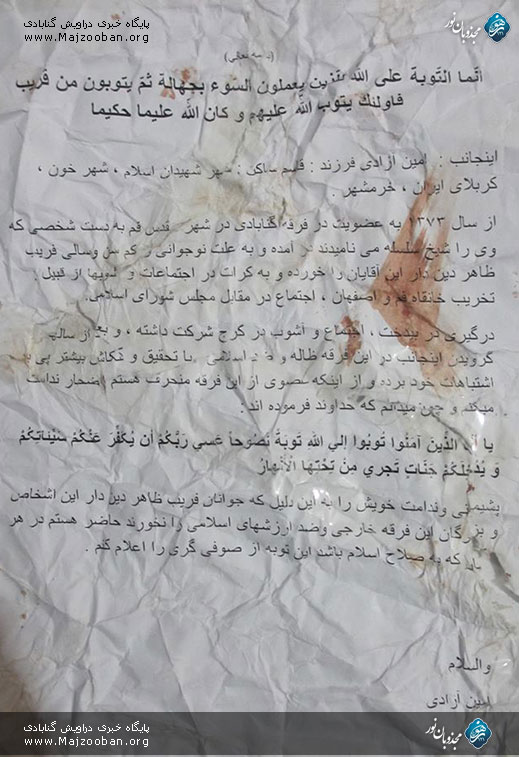 پایگاه خبری دراویش گنابادی
www.Majzooban.org
مجذوبان نور
انّما التّوبة على الله يعملون السّوء بجهالة ثمّ يتوبون من قريب
فاولئك يتوب الله عليهم و كان الله عليما حكيما
اینجانب : امین آزادی فرزند : قاسم ساکن : شهر شهیدان اسلام ، شهر خون ،
کربلای ایران ، خرمشهر .
از سال ۱۳۷۳ به عضویت در فرقه گنابادی در شهر قدس قم به دست شخصی که
وی را شیخ سلسله می نامیدند در آمده و به علت نوجوانی و کم سن وسالی فریب
ظاهر دین دار این آقایان را خورده و به کرات در اجتماعات و از قبیل
تخریب خانقاه قم و اصفهان ، اجتماع در مقابل مجلس شورای اسلامی،
درگیری در بیدخت ، اجتماع و آشوب در کرج شرکت داشته ، و بعد از سالها
گرویدن اینجانب در این فرقه ظاله و ضد اسلامی با تحقیق و کنکاش بیشتر پی به
اشتباهات خود برده و از اینکه عضوی از این فرقه منحرف هستم ندامت
میکنم و چون میدانم که خداوند فرموده اند :
يا الّذين آمَنُوا تُوبُوا إلي الله تَوبَةً نَصُوحاً عَسي رَبُّكُمْ أن يُكَفِّرَ عَنْكُمْ سَيِّئاتِكُمْ
وَ يُدْخِلَكُمْ جَنّاتٍ تَجري مِنْ تَحْتِها الْأنْهارُ
پشیمانی وندامت خویش را به این دلیل که جوانان فریب ظاهر دین دار این اشخاص
و بزرگان این فرقه خارجی وضد ارزشهای اسلامی را نخورند حاضر هستم در هر
که به صلاح اسلام باشد این توبه از صوفی گری را اعلام کنم .
والسلام
امین آزادی
پایگاه خبری دراویش گنابادی
www.Majzooban.org
مجذوبان نور